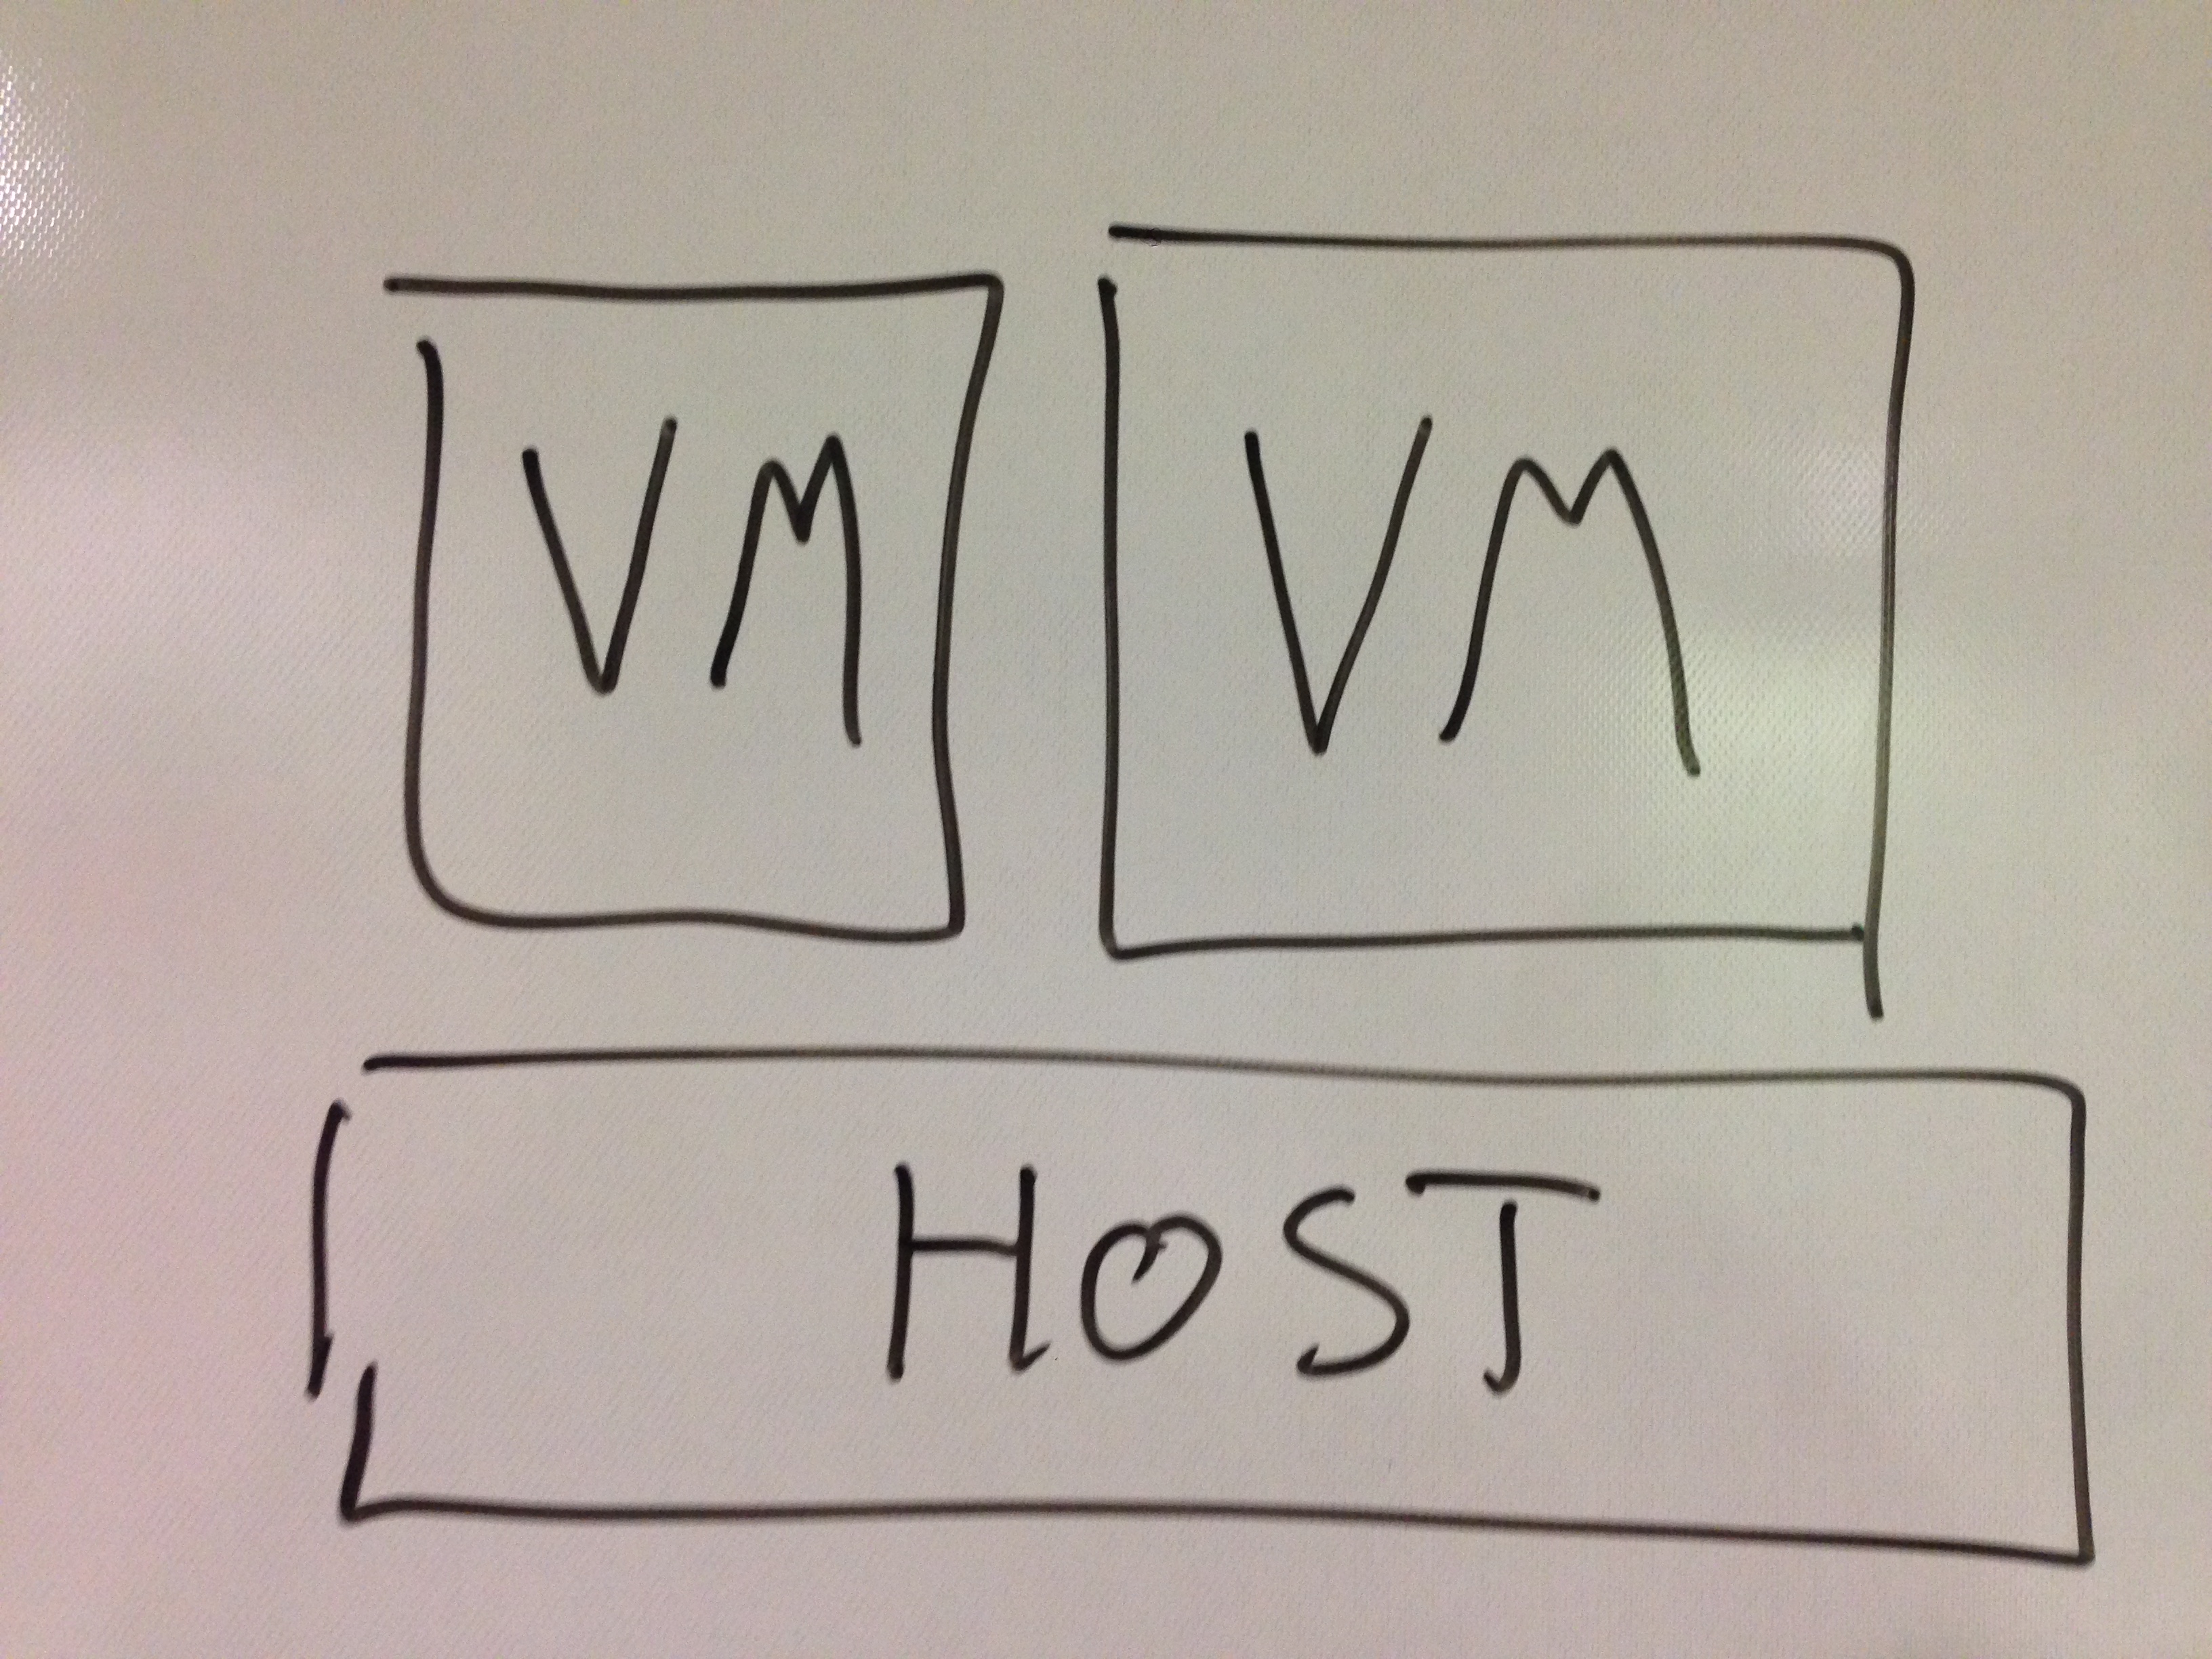 VM VM
HOST